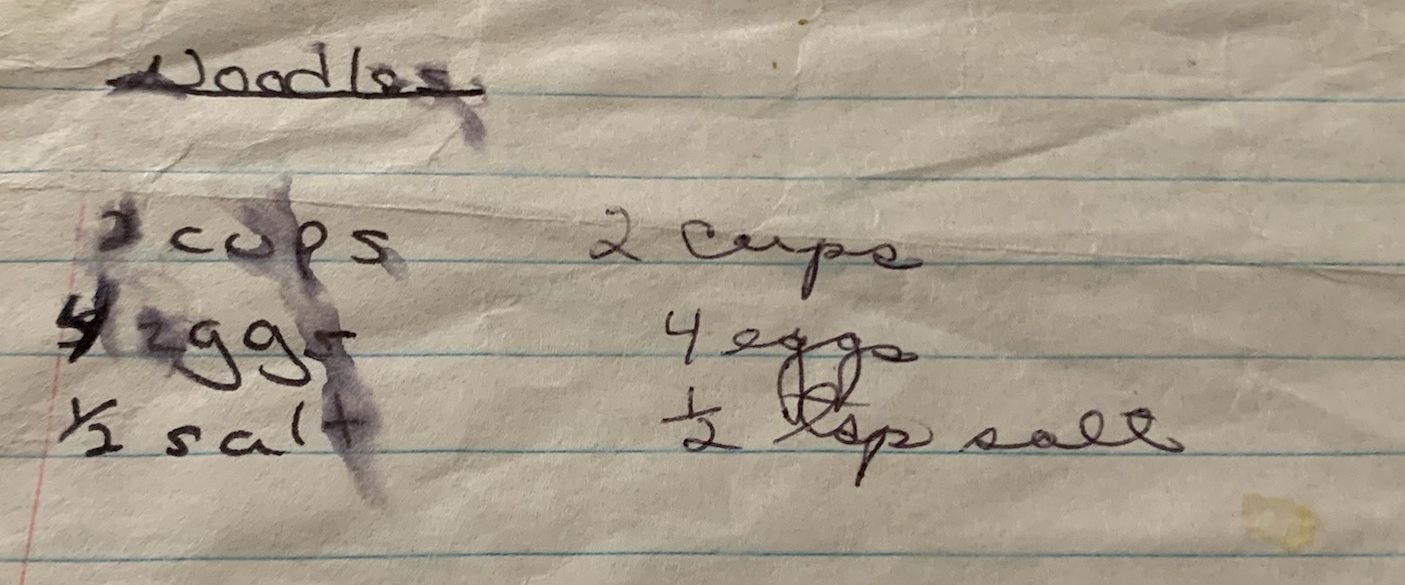 Noodles
2 cups 2 cups
4 eggs 4 eggs
1/2 salt 1/2 tsp salt